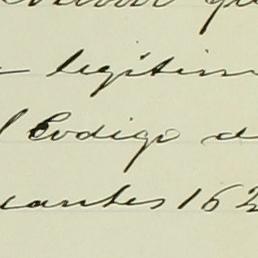 legitim
l Codigo d
cantes 162